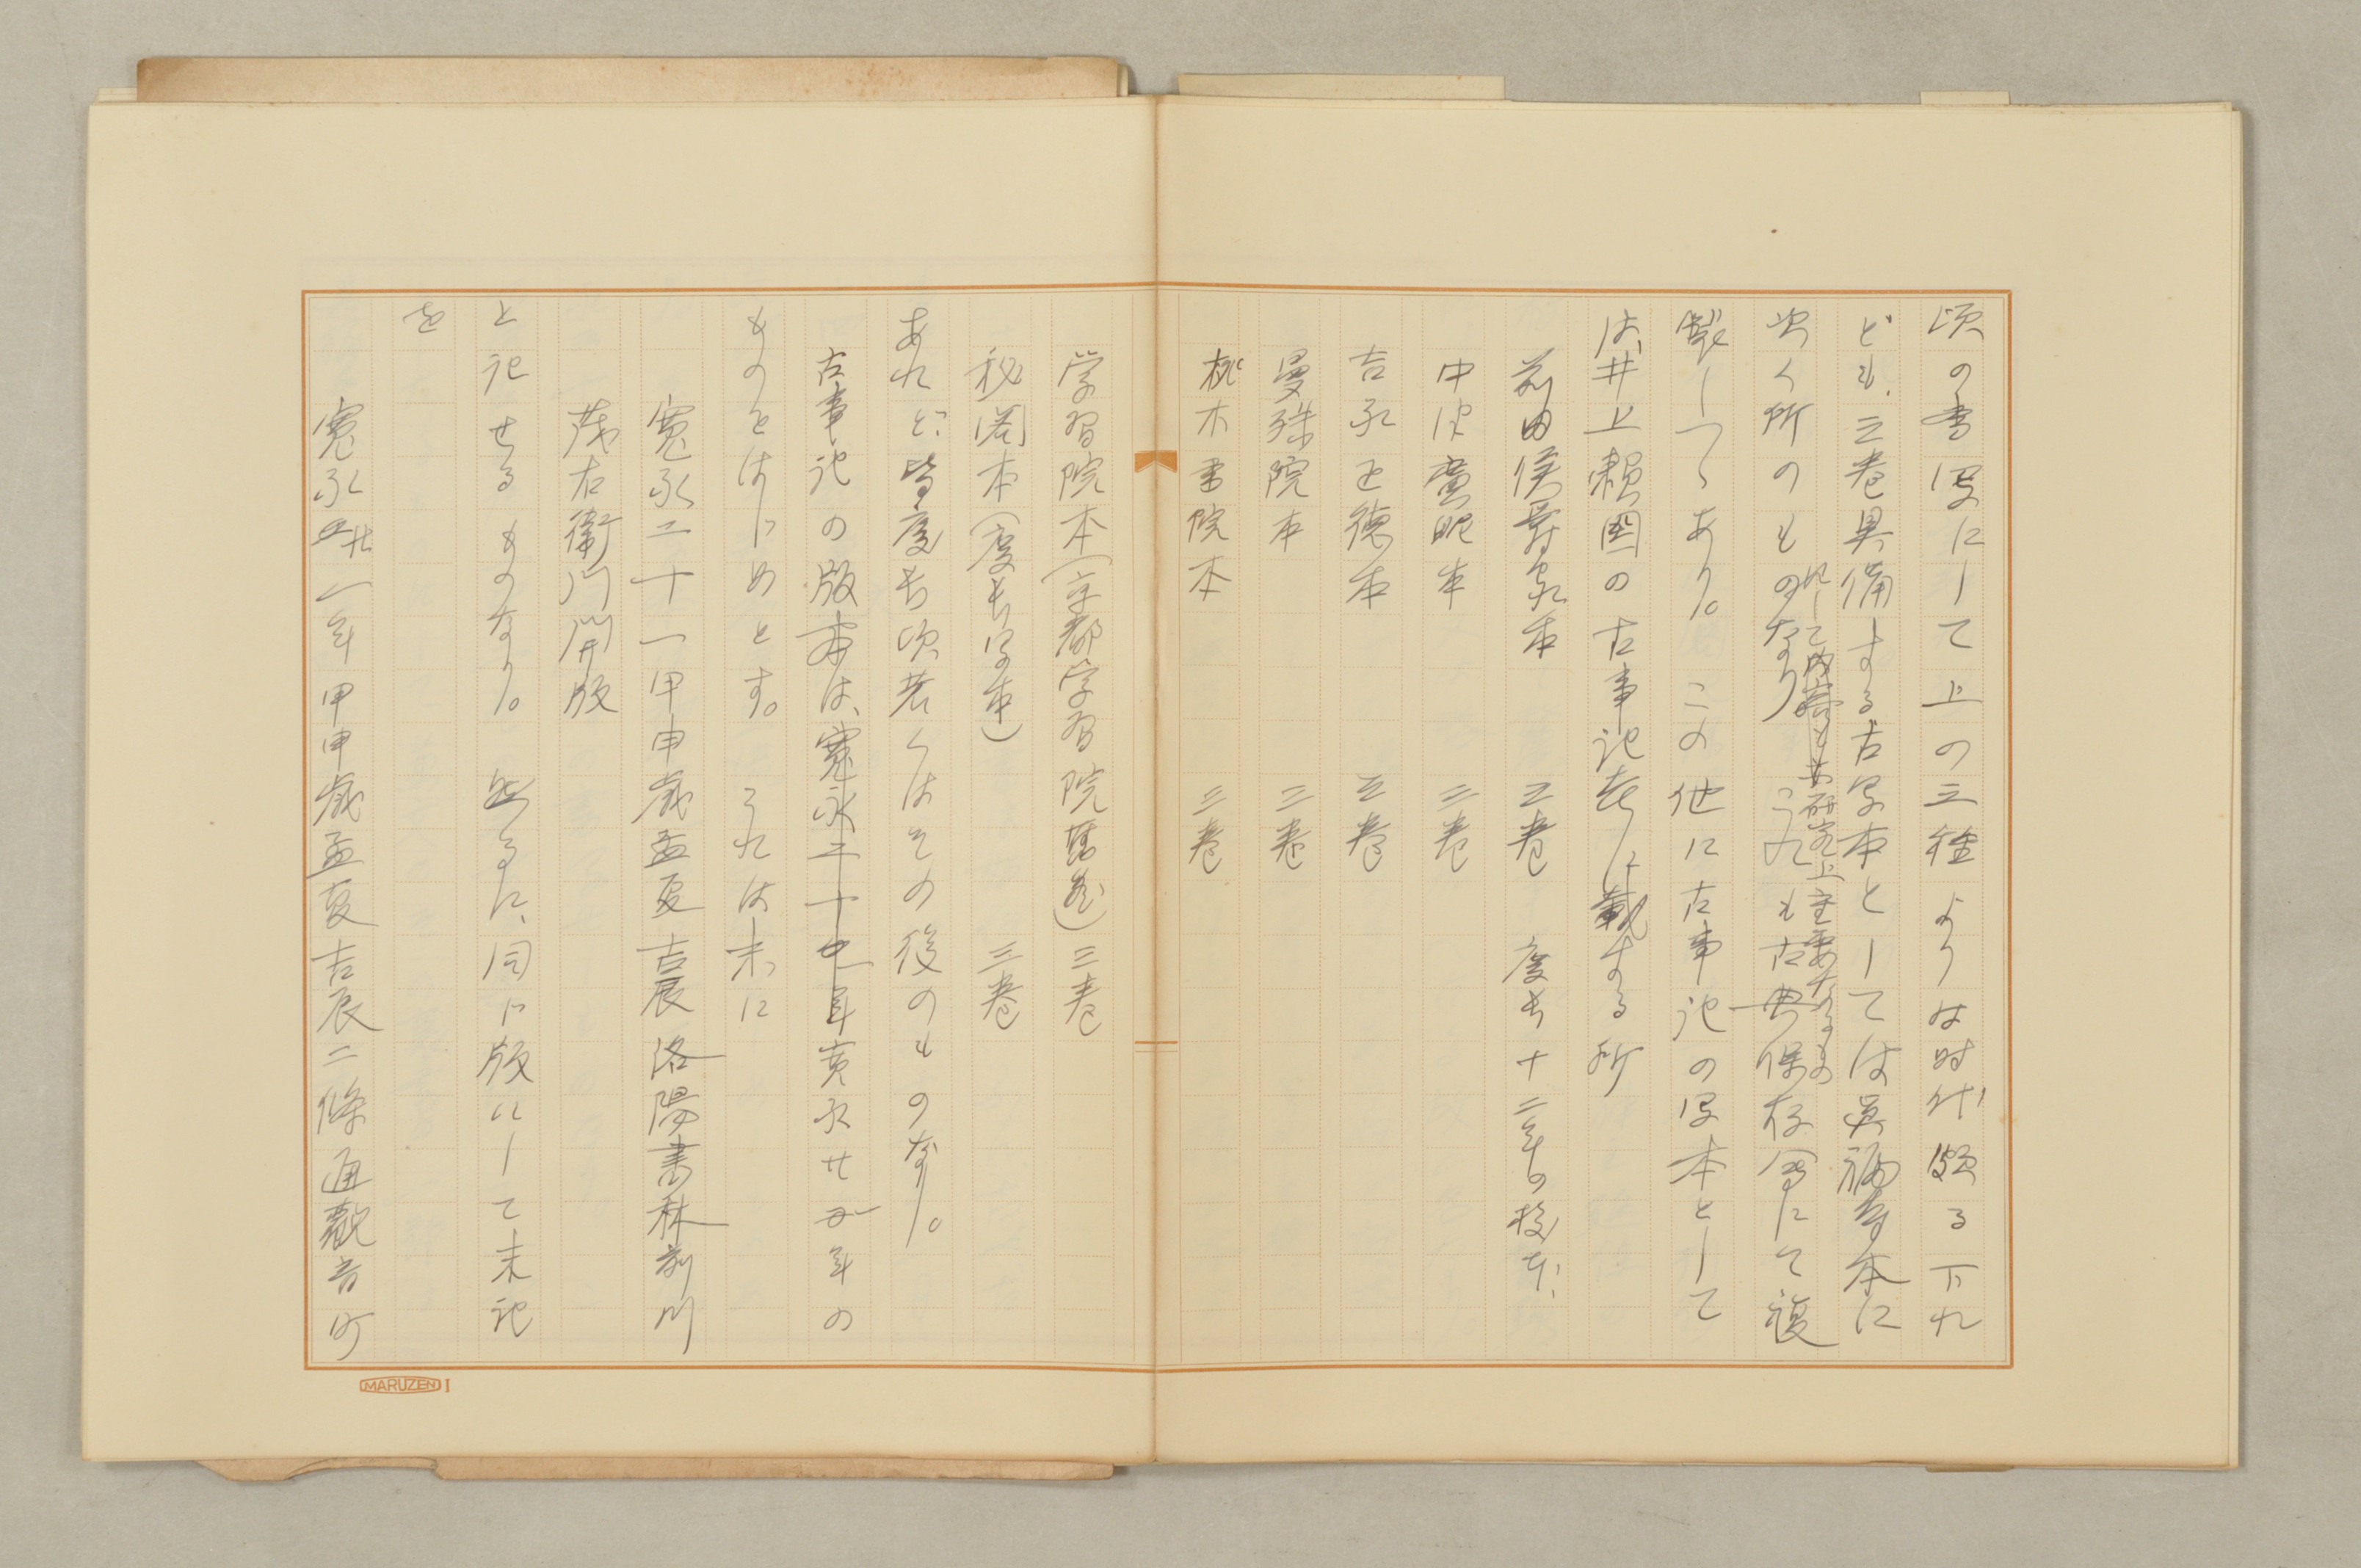 頃の書写にして上の三種よりは時代頗る下れ
ども、三巻具備する古写本としては真福寺本に
次ぐ所のものなり
して
研究上主要なるもの
これも古典保存会にて複
製しつゝあり。この他に古事記の写本として
は、井上頼圀の古事記考に載する所
前田侯爵家本 三巻 慶長十二年の校本、
中院本 三巻
吉永正徳本 三巻
曼殊院本 三巻
桃木書院本 三巻
学習院本(京都学習院旧蔵) 三巻
秘閣本(慶長写本) 三巻
あれど、皆慶長頃若くはその後のものなり。
古事記の版本は、寛永廿一年の
ものをはじめとす。これは末に
寛永二十一甲申歳孟夏吉辰 洛陽書林前川
茂右衛門開版
と記せるものなり。然るに、同じ版にして末記
を
寛永廿一年甲申歳孟夏吉辰二條通観音町
MARUZEN I